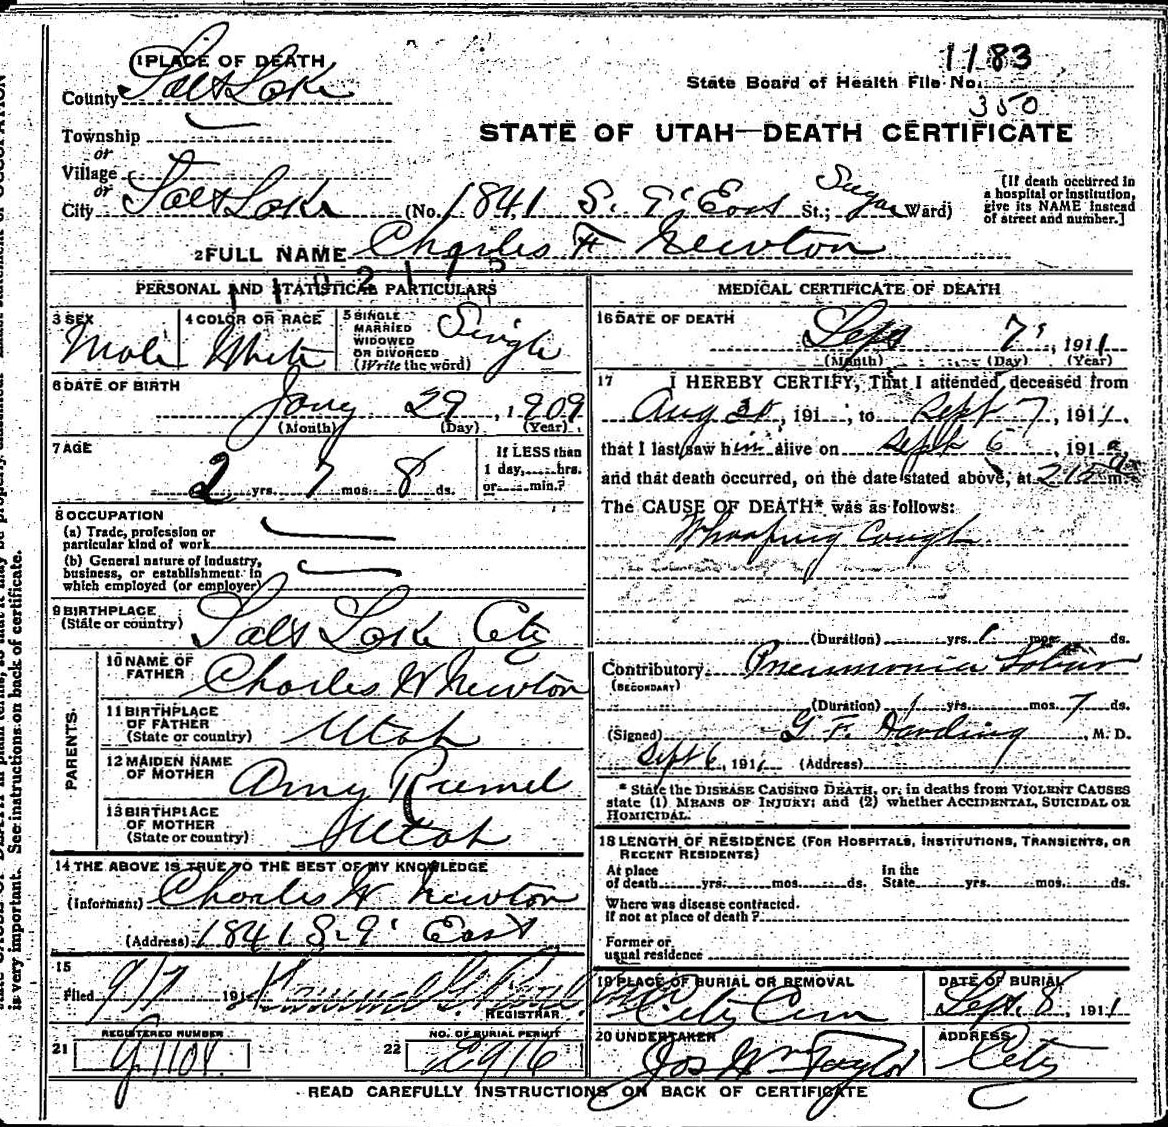 1183
State Board of Health File No.
350
1 PLACE OF DEATH
County Salt Lake
STATE OF UTAH—DEATH CERTIFICATE
Township
or
Village
or
City Salt Lake (No. 1841 S. 9' East St.; Sugar Ward)
[If death occurred in a hospital or institution, give its NAME instead of street and number.]
2 FULL NAME Charles F Newton
PERSONAL AND STATISTICAL PARTICULARS
3 SEX
Male
4 COLOR OR RACE
White
5 SINGLE MARRIED WIDOWED OR DIVORCED (Write the word)
Single
6 DATE OF BIRTH
Jany 29, 1909
(Month) (Day) (Year)
7 AGE
2 yrs. 7 mos. 8 ds.
If LESS than
1 day, hrs.
or min.?
8 OCCUPATION
(a) Trade, profession or
particular kind of work
(b) General nature of industry,
business, or establishment in
which employed (or employer)
9 BIRTHPLACE
(State or country) Salt Lake City
PARENTS.
10 NAME OF FATHER Charles W Newton
11 BIRTHPLACE OF FATHER (State or country) Utah
12 MAIDEN NAME OF MOTHER Amy Rumel
13 BIRTHPLACE OF MOTHER (State or country) Utah
14 THE ABOVE IS TRUE TO THE BEST OF MY KNOWLEDGE
(Informant) Charles W Newton
(Address) 1841 S. 9' East
15
Filed 9/7 191
REGISTRAR.
REGISTERED NUMBER
21
NO. OF BURIAL PERMIT
22 E916
MEDICAL CERTIFICATE OF DEATH
16 DATE OF DEATH
Sept 7', 1911
(Month) (Day) (Year)
17 I HEREBY CERTIFY, That I attended deceased from
Aug 30, 191 , to Sept 7, 1911,
that I last saw him alive on Sept 6, 191
and that death occurred, on the date stated above, at 215 a m.
The CAUSE OF DEATH* was as follows:
Whooping Cough
(Duration) yrs. 1 mos. ds.
Contributory Pneumonia Lobar
(SECONDARY)
(Duration) yrs. mos. 7 ds.
(Signed) G. F. Harding, M. D.
Sept 6, 1911 (Address)
* State the DISEASE CAUSING DEATH, or, in deaths from VIOLENT CAUSES
state (1) MEANS OF INJURY; and (2) whether ACCIDENTAL, SUICIDAL OR
HOMICIDAL.
18 LENGTH OF RESIDENCE (FOR HOSPITALS, INSTITUTIONS, TRANSIENTS, OR
RECENT RESIDENTS)
At place
of death yrs. mos. ds.
In the
State yrs. mos. ds.
Where was disease contracted.
If not at place of death?
Former or
usual residence
19 PLACE OF BURIAL OR REMOVAL
City Cem
DATE OF BURIAL
Sept. 8, 1911
20 UNDERTAKER
Jos Wm Taylor
ADDRESS
City
READ CAREFULLY INSTRUCTIONS ON BACK OF CERTIFICATE
is very important. See instructions on back of certificate.